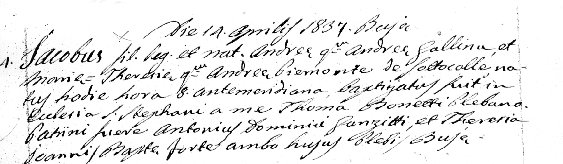 Die 14 Aprilis 1837. Buja
4. Jacobus fil. leg. et nat. Andreæ qm Andreæ Gallina, et
Mariæ = Theresiæ qm Andreæ Piemonte de Sottocolle na=
tus hodie hora 8 antemeridiana, baptizatus fuit in
Ecclesia S. Stephani a me Thoma Bonetti Plebano.
Patrini fuere Antonius Dominici Ganzitti, et Theresia
Joannis Baptæ Forte ambo hujus Plebis Bujæ.